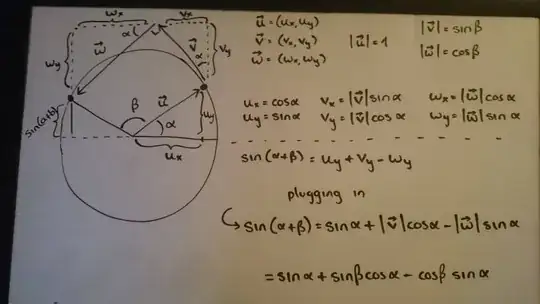 wₓ vₓ
α
w_y w⃗ v⃗ α v_y
sin(α+β)
β u⃗ α u_y
uₓ
u⃗ = (uₓ, u_y)
v⃗ = (vₓ, v_y)
w⃗ = (wₓ, w_y)
|u⃗| = 1
|v⃗| = sinβ
|w⃗| = cosβ
uₓ = cosα vₓ = |v⃗| sinα wₓ = |w⃗| cosα
u_y = sinα v_y = |v⃗| cosα w_y = |w⃗| sinα
sin(α+β) = u_y + v_y - w_y
plugging in
↳ sin(α+β) = sinα + |v⃗| cosα - |w⃗| sinα
= sinα + sinβ cosα - cosβ sinα